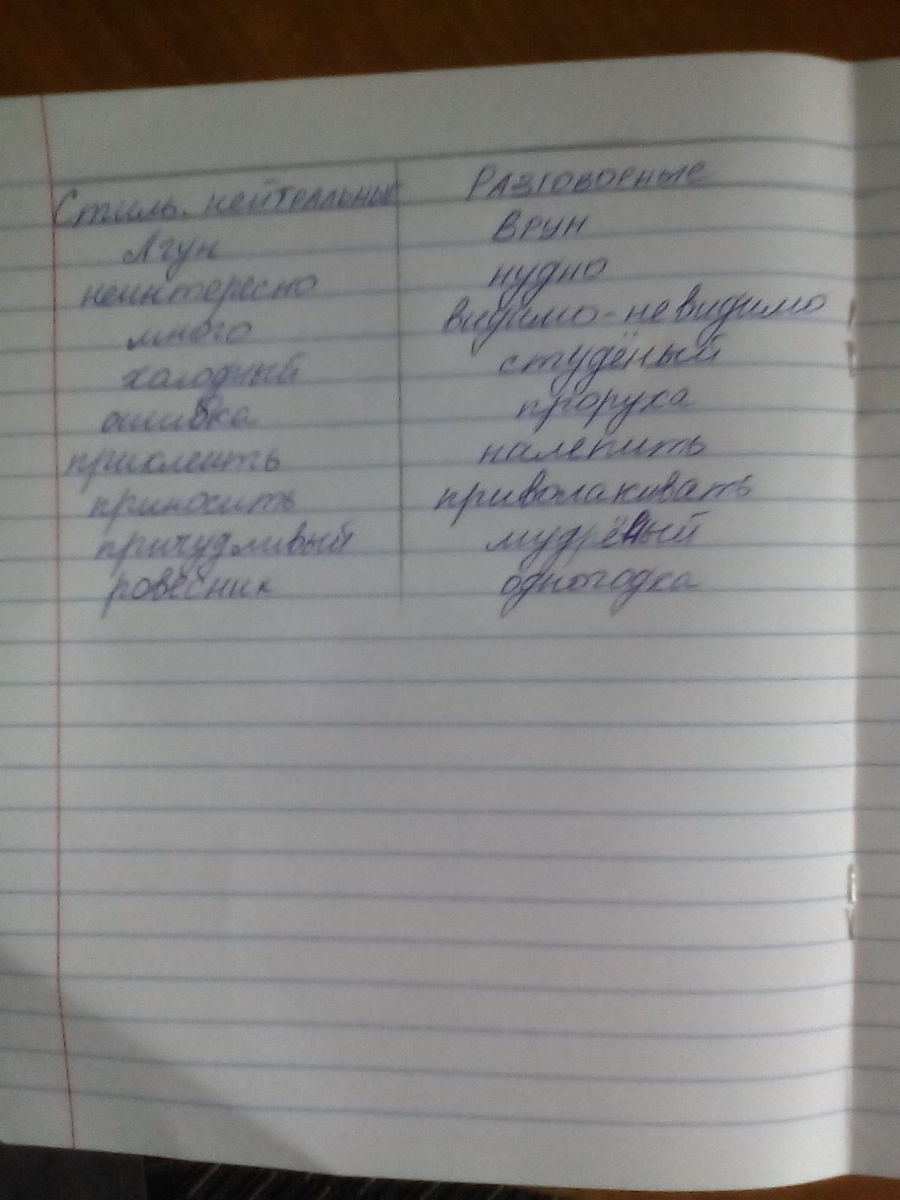 Стиль. нейтральные Разговорные
Лгун Врун
неинтересно нудно
много видимо-невидимо
холодный студёный
ошибка проруха
приклеить налепить
приносить приволакивать
причудливый мудрёный
ровесник одногодка